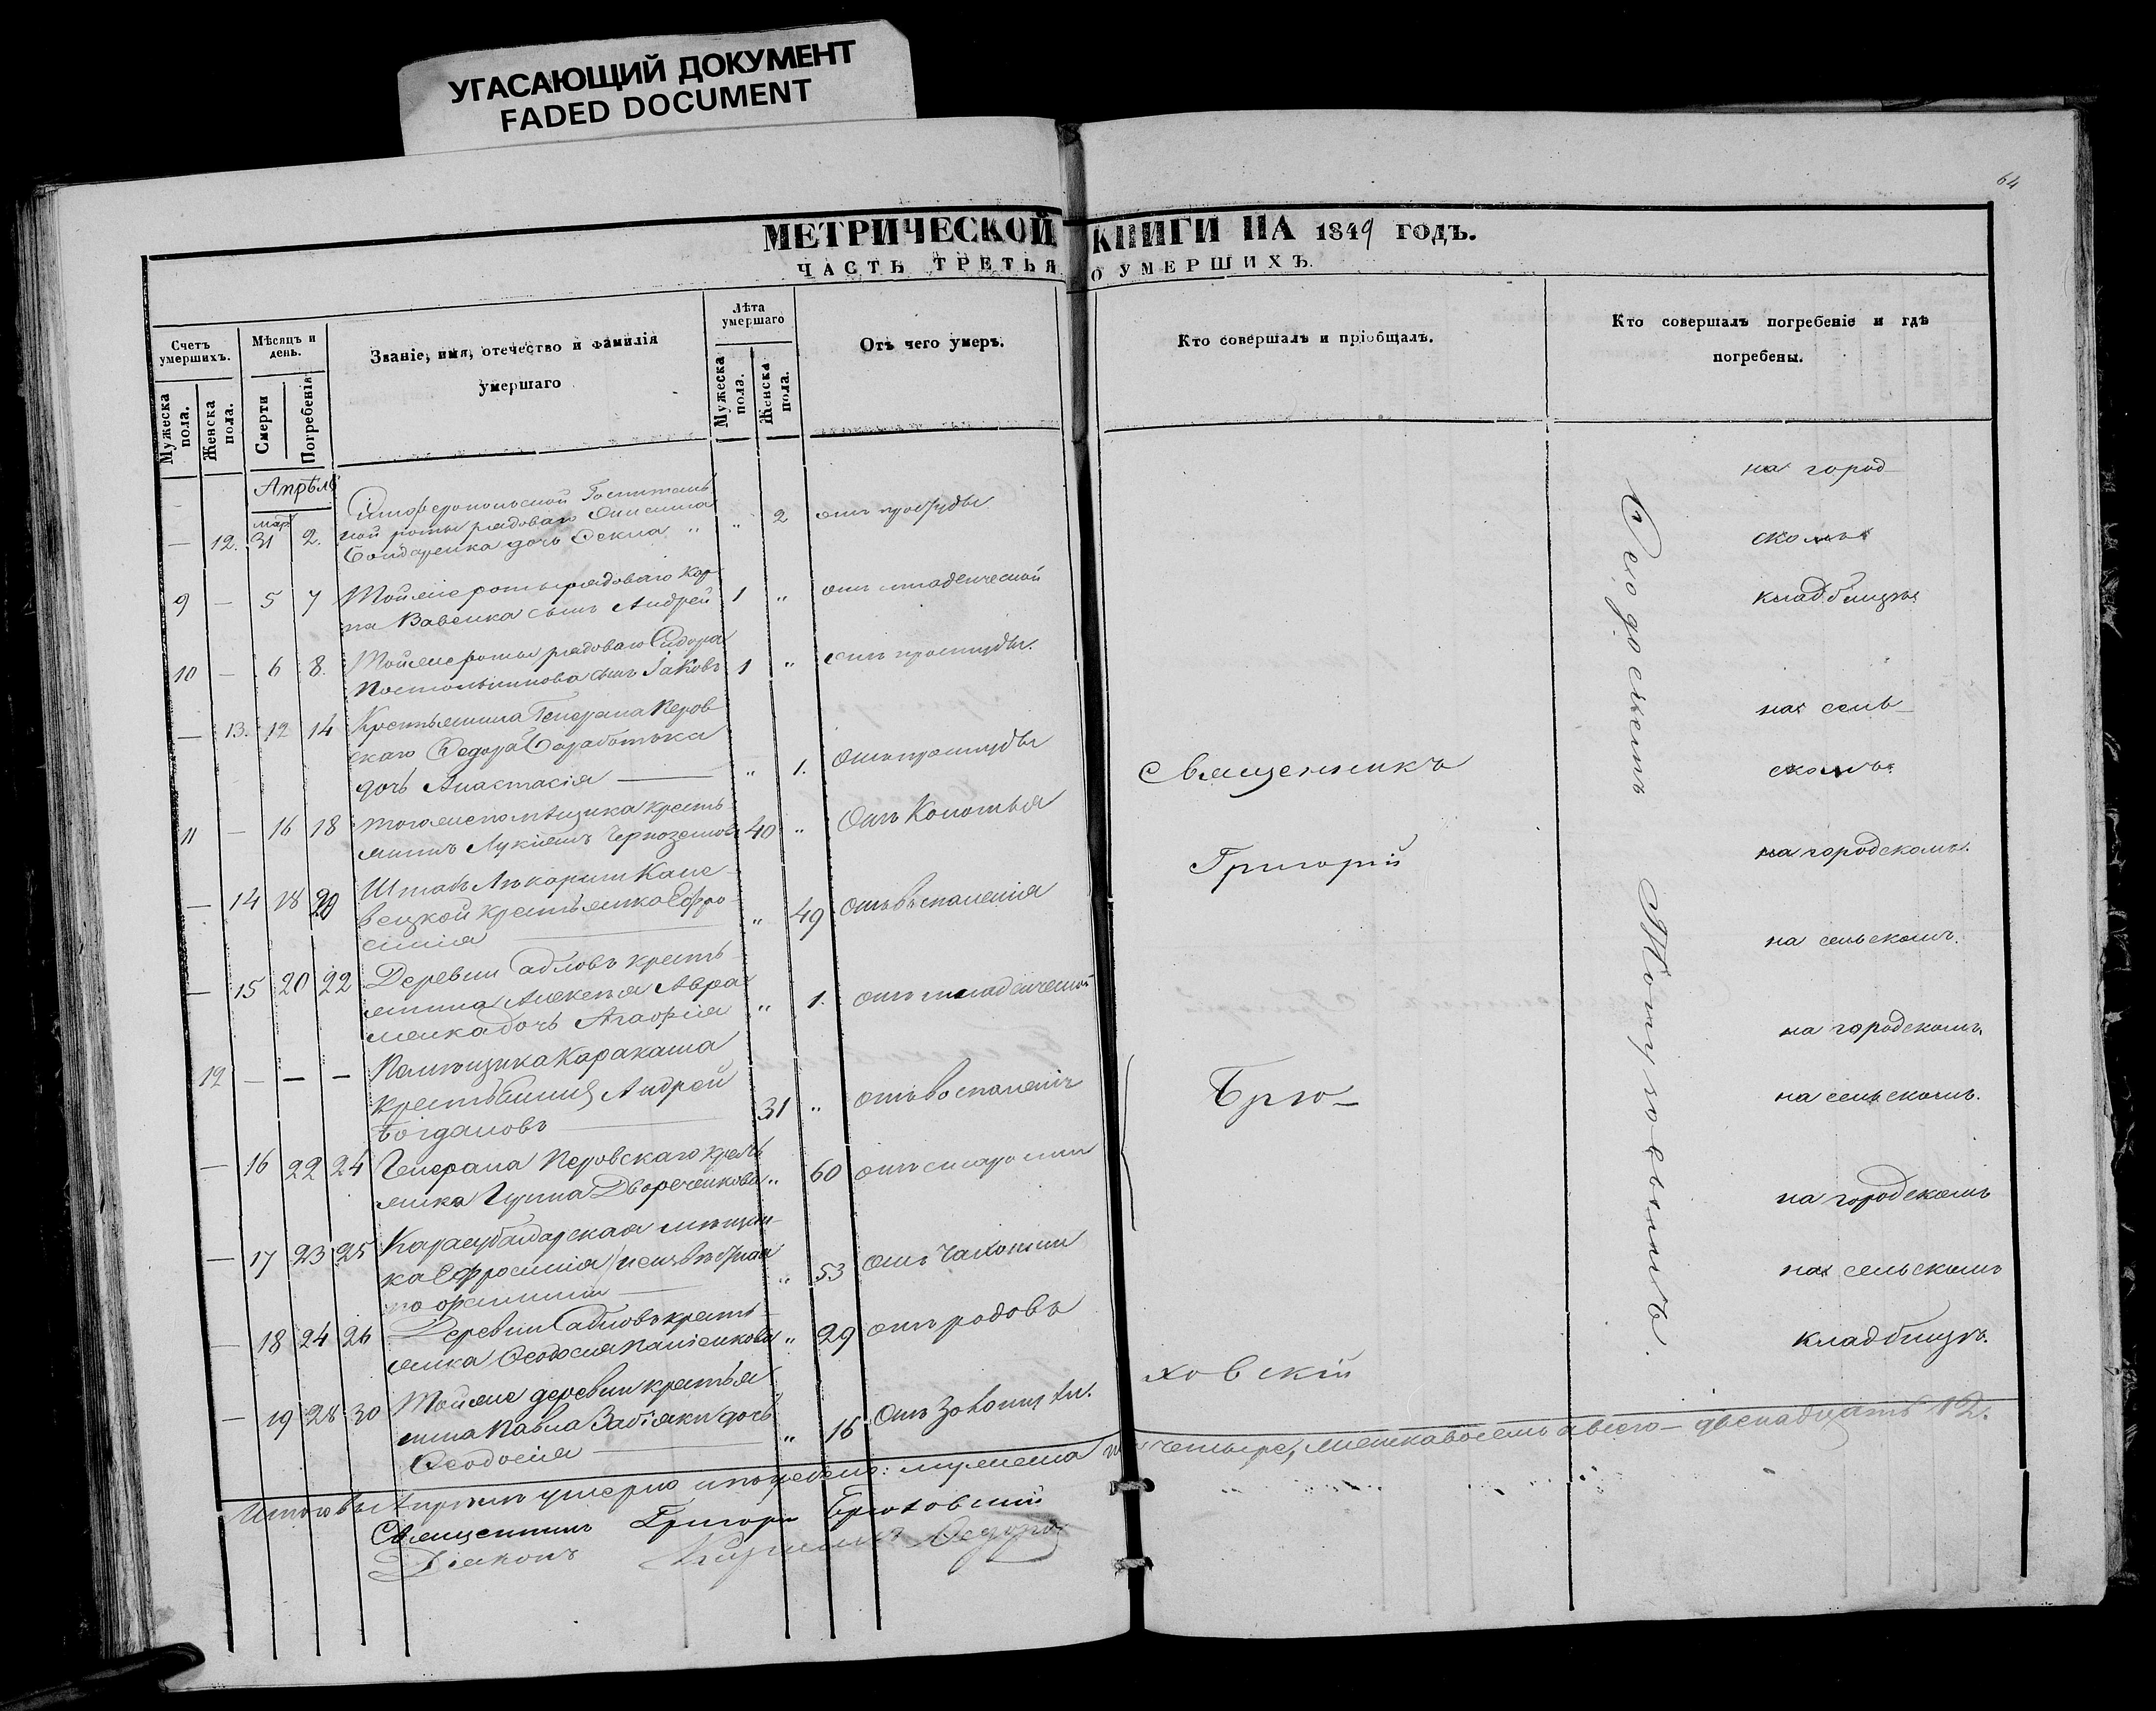 УГАСАЮЩИЙ ДОКУМЕНТ
FADED DOCUMENT
64
МЕТРИЧЕСКОЙ КНИГИ НА 1849 ГОДЪ.
ЧАСТЬ ТРЕТЬЯ О УМЕРШИХЪ.
Счетъ умершихъ.
Мужеска пола.
Женска пола.
Мѣсяцъ и день.
Смерти
Погребенія
Званіе, имя, отечество и фамилія
умершаго
Лѣта умершаго
Мужеска пола.
Женска пола.
Отъ чего умеръ.
Кто совершалъ и пріобщалъ.
Кто совершалъ погребеніе и гдѣ
погребены.
Апрѣль
Симферопольской Госпиталь
— 12. мар. 31 2. ной роты рядоваго
Бондаренка дочь Фекла " 2 отъ простуды
9 — 5 7 Тойже роты рядоваго Кар
па Вавенка сынъ Андрей 1 " отъ младенческой
10 — 6 8. Тойже роты рядоваго Сидора
сынъ Іаковъ 1 " отъ простуды.
— 13. 12 14 Крестьянина Генерала Перов
скаго Федора
дочь Анастасія — " 1. отъ простуды
11 — 16 18 тогоже помѣщика кресть
янинъ Лукіянъ 40 " отъ
— 14 18 20 Штабъ Лѣкарши
крестьянка Ефро
синія — " 49 отъ воспаленія
— 15 20 22 Деревни Сабловъ кресть
янина Алексѣя Авра
менка дочь Агафія " 1. отъ младенческой
12 — — — Помѣщика Каракаша
крестьянинъ Андрей
Богдановъ — 31 " отъ воспаленія
— 16 22 24 Генерала Перовскаго кресть
янка 60 отъ старости
— 17 23 25 Карасубазарская мѣщан
ка Ефросинія (неизвѣстная
по фамиліи — " 53 отъ чахотки
— 18 24 26 Деревни Сабловъ кресть
янка Феодосія " 29 отъ родовъ
— 19 28 30 Тойже деревни крестья
нина Павла Забіяки дочь
Феодосія — " 16 отъ
Священникъ
Григорій
Брю-
ховскій
Феодосіемъ
на город
скомъ
кладбищѣ.
на сель
скомъ
на городскомъ.
на сельскомъ.
на городскомъ.
на сельскомъ.
на городскомъ
на сельскомъ
кладбищѣ.
Итого въ Апрѣлѣ умерло и погребено: мужеска четыре, женска восемь а всего — двенадцать 12.
Священникъ Григорій Брюховскій
Діаконъ